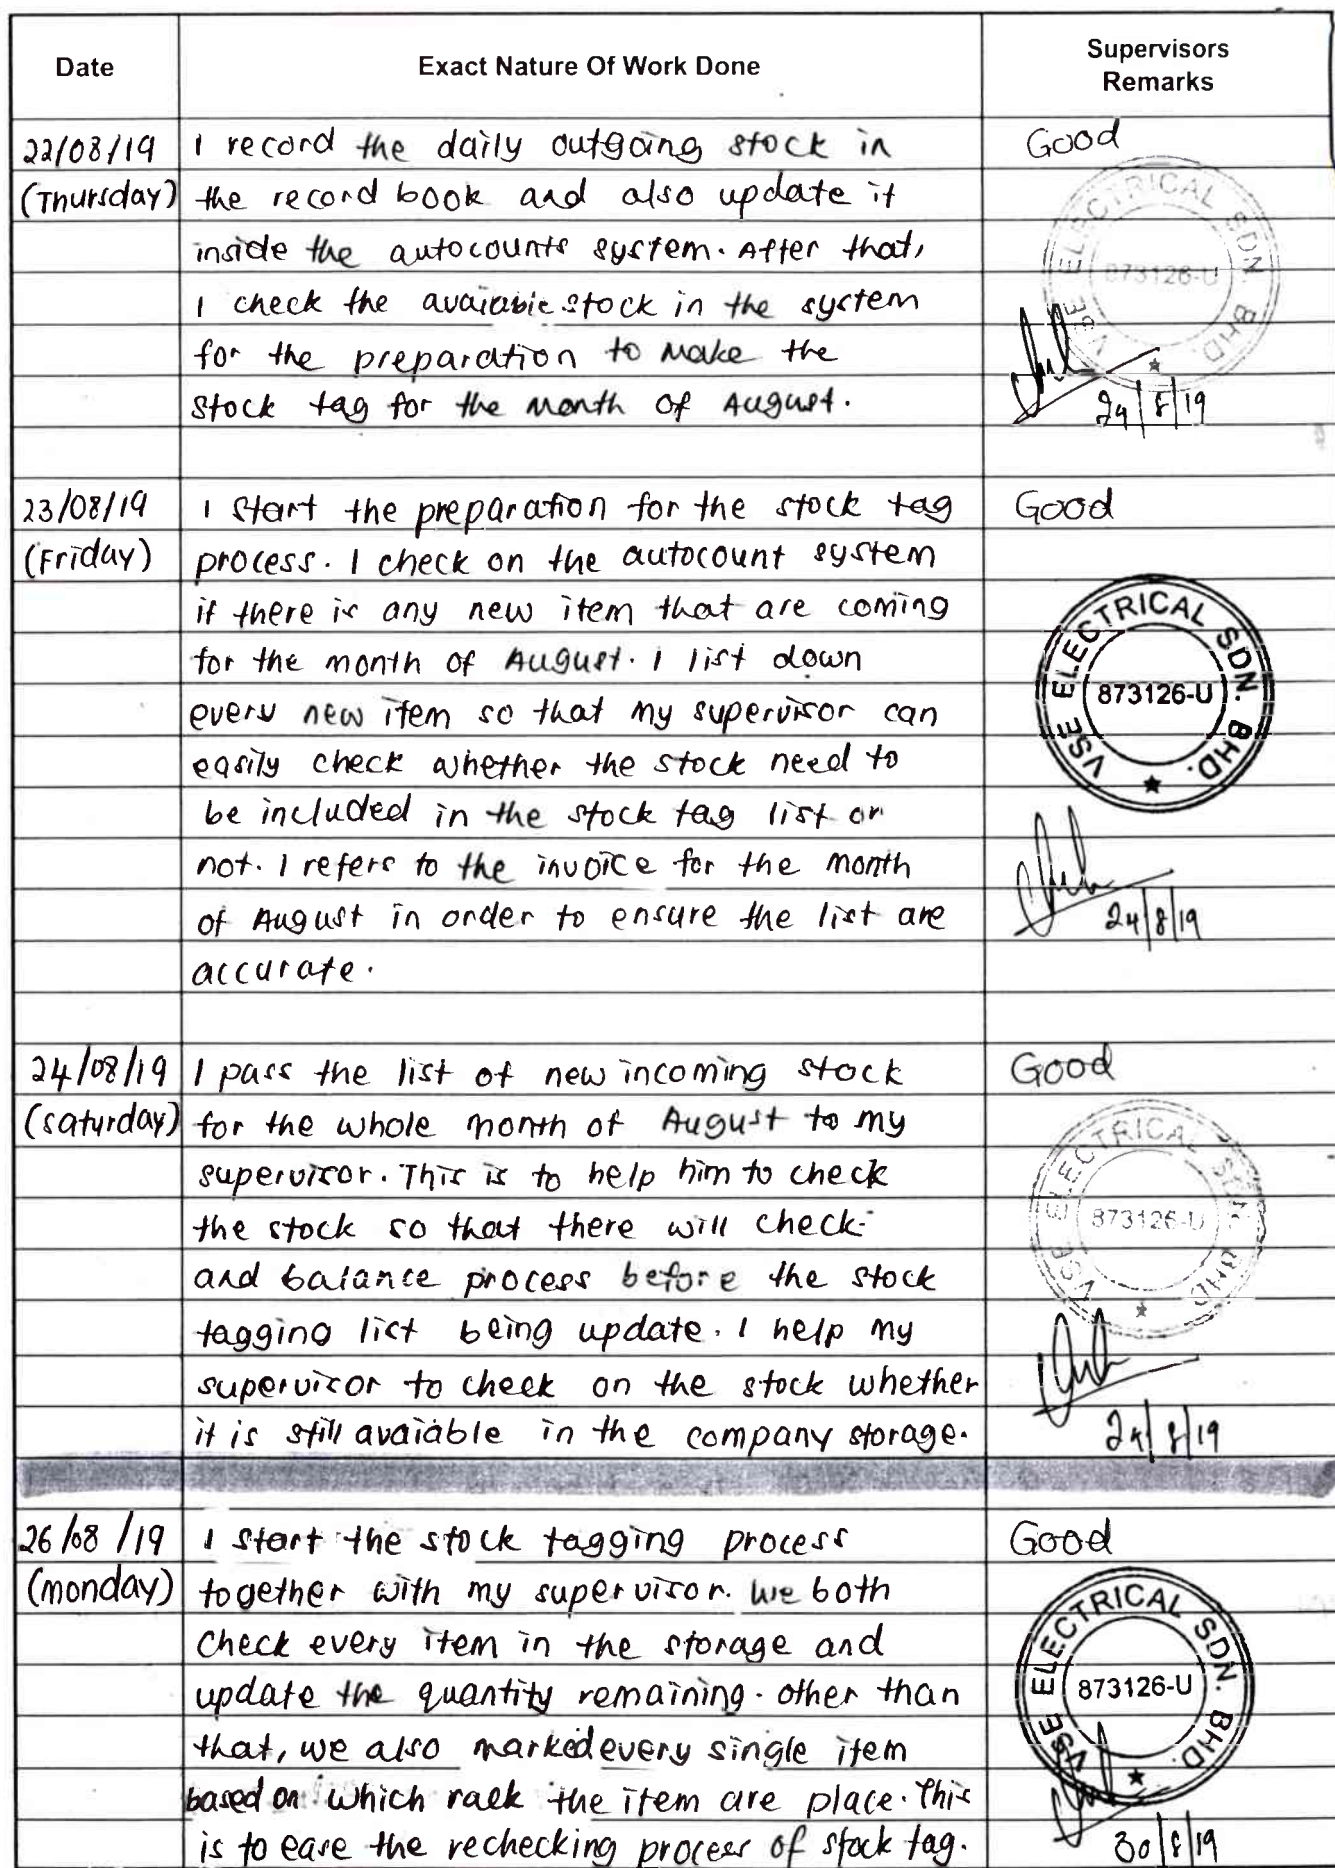 Date Exact Nature Of Work Done Supervisors
Remarks
22/08/19 I record the daily outgoing stock in Good
(Thursday) the record book and also update it
inside the autocounts system. After that,
I check the avaiable stock in the system
for the preparation to make the
stock tag for the month of August.
VSE ELECTRICAL SDN. BHD.
873126-U
24/8/19
23/08/19 I start the preparation for the stock tag Good
(Friday) process. I check on the autocount system
if there is any new item that are coming
for the month of August. I list down
every new item so that my supervisor can
easily check whether the stock need to
be included in the stock tag list or
not. I refers to the invoice for the month
of August in order to ensure the list are
accurate.
VSE ELECTRICAL SDN. BHD.
873126-U
24/8/19
24/08/19 I pass the list of new incoming stock Good
(saturday) for the whole month of August to my
supervisor. This is to help him to check
the stock so that there will check
and balance process before the stock
tagging list being update. I help my
supervisor to check on the stock whether
it is still avaiable in the company storage.
VSE ELECTRICAL SDN. BHD.
873126-U
24/8/19
26/08/19 I start the stock tagging process Good
(monday) together with my supervisor. We both
check every item in the storage and
update the quantity remaining. other than
that, we also marked every single item
based on which rack the item are place. This
is to ease the rechecking process of stock tag.
VSE ELECTRICAL SDN. BHD.
873126-U
30/8/19